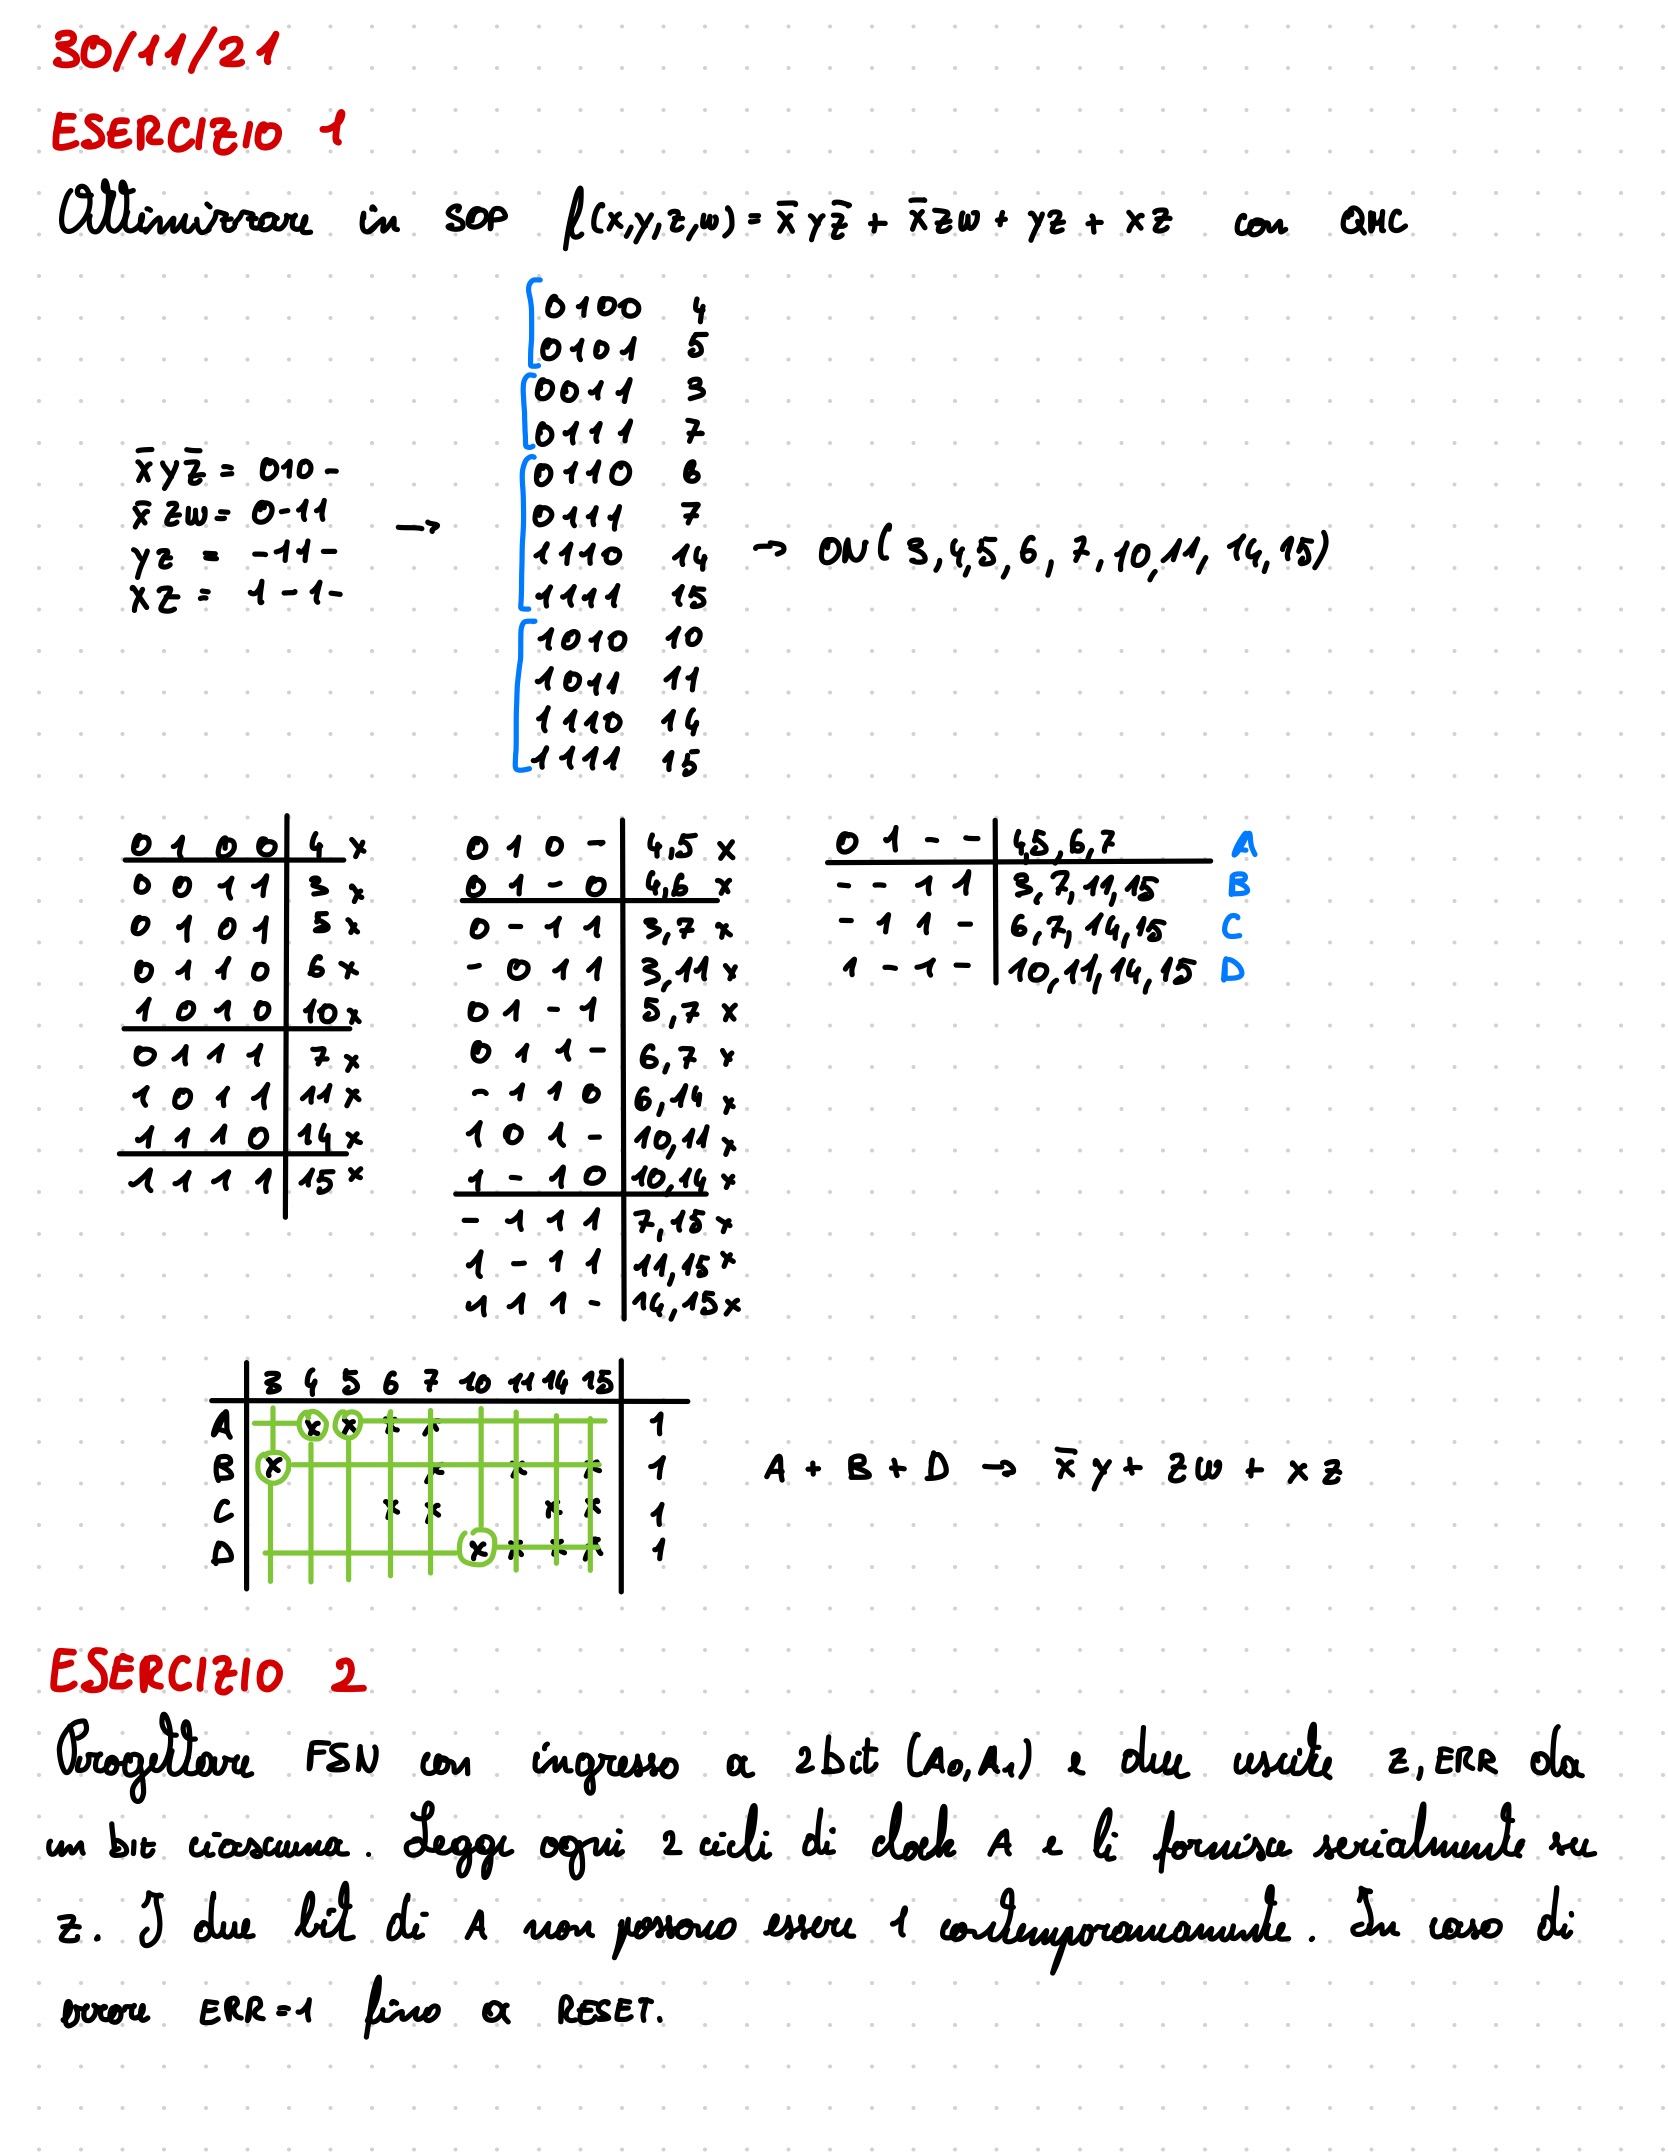 30/11/21
ESERCIZIO 1
Ottimizzare in SOP f(x,y,z,w) = x̄ y z̄ + x̄ z w + y z + x z con QMC
0100 4
0101 5
0011 3
0111 7
0110 6
0111 7
1110 14
1111 15
1010 10
1011 11
1110 14
1111 15
x̄ y z̄ = 010-
x̄ z w = 0-11
y z = -11-
x z = 1-1-
→
→ ON( 3,4,5,6,7,10,11,14,15)
0 1 0 0 4 x
0 0 1 1 3 x
0 1 0 1 5 x
0 1 1 0 6 x
1 0 1 0 10 x
0 1 1 1 7 x
1 0 1 1 11 x
1 1 1 0 14 x
1 1 1 1 15 x
0 1 0 - 4,5 x
0 1 - 0 4,6 x
0 - 1 1 3,7 x
- 0 1 1 3,11 x
0 1 - 1 5,7 x
0 1 1 - 6,7 x
- 1 1 0 6,14 x
1 0 1 - 10,11 x
1 - 1 0 10,14 x
- 1 1 1 7,15 x
1 - 1 1 11,15 x
1 1 1 - 14,15 x
0 1 - - 4,5,6,7 A
- - 1 1 3,7,11,15 B
- 1 1 - 6,7,14,15 C
1 - 1 - 10,11,14,15 D
3 4 5 6 7 10 11 14 15
A x x x x 1
B x x x x 1
C x x x x 1
D x x x x 1
A + B + D → x̄ y + z w + x z
ESERCIZIO 2
Progettare FSN con ingresso a 2bit (A₀,A₁) e due uscite z,ERR da
un bit ciascuna. Legge ogni 2 cicli di clock A e li fornisce serialmente su
z. I due bit di A non possono essere 1 contemporaneamente. In caso di
errore ERR=1 fino a RESET.